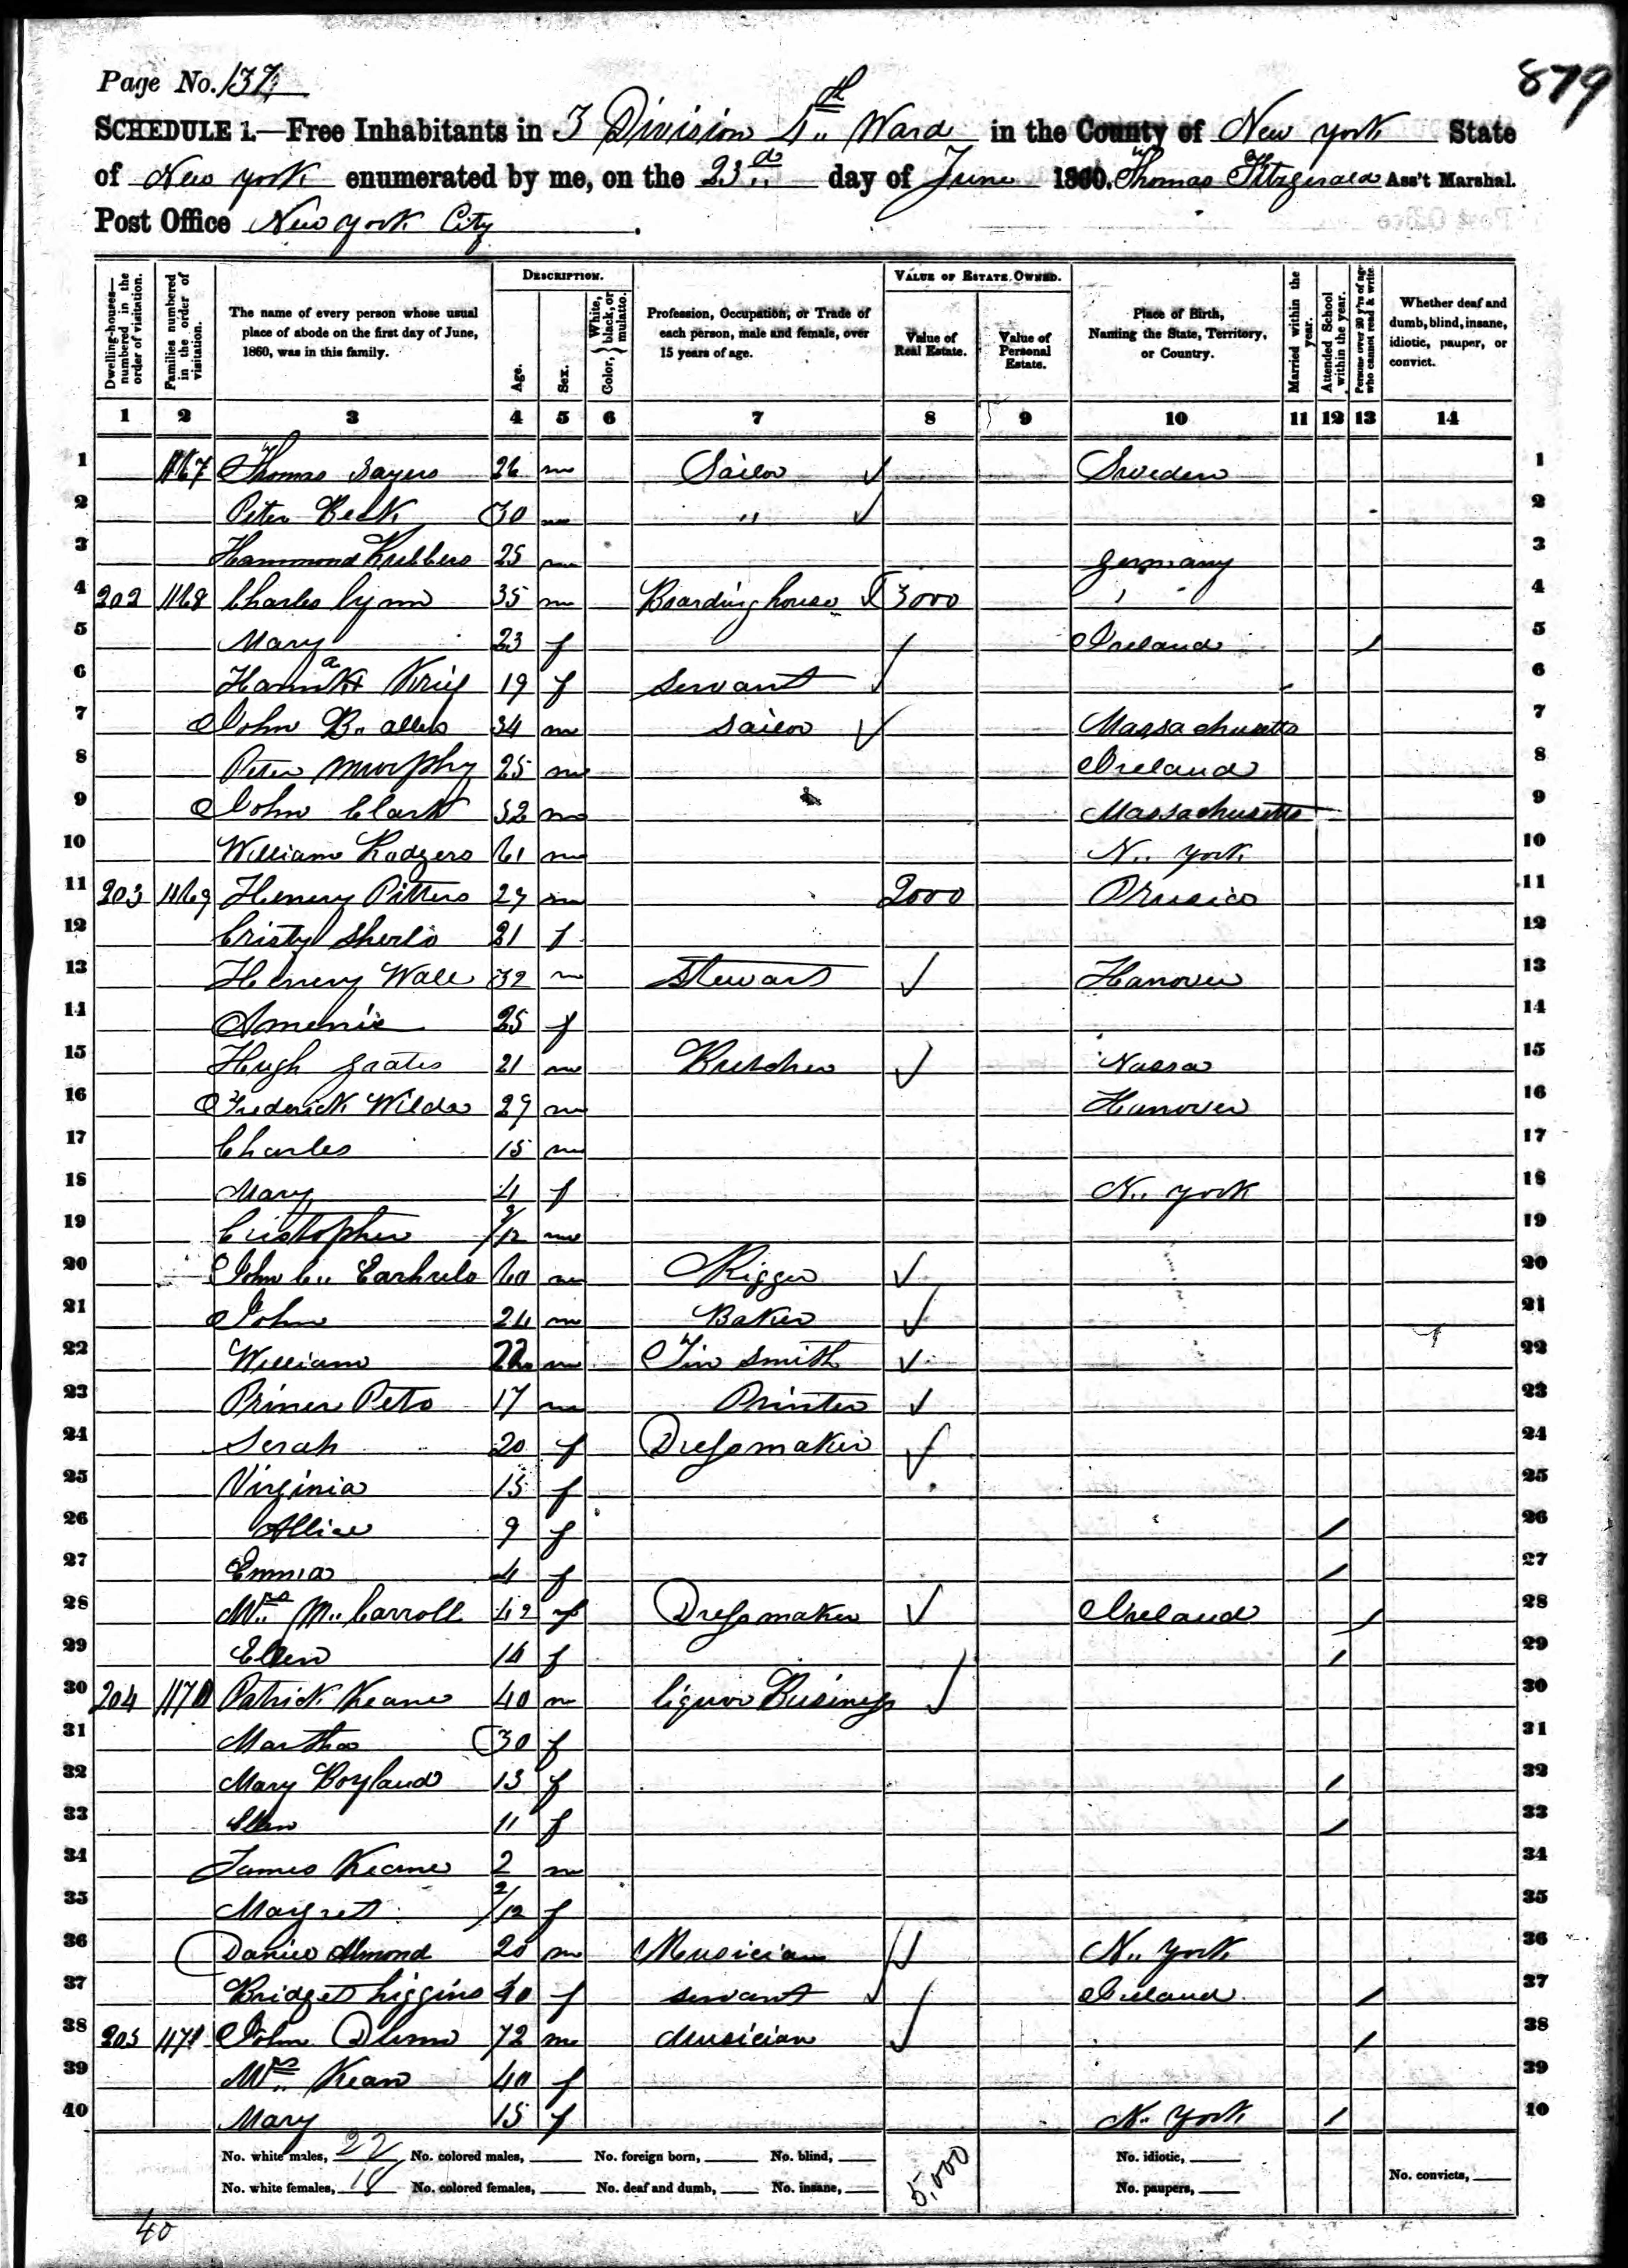 Page No. 137
879
SCHEDULE 1.—Free Inhabitants in 3 Division 4th Ward in the County of New York State
of New York enumerated by me, on the 23d day of June 1860. Thomas Fitzgerald Ass't Marshal.
Post Office New York City
Dwelling-houses—numbered in the order of visitation.
Families numbered in the order of visitation.
The name of every person whose usual place of abode on the first day of June, 1860, was in this family.
DESCRIPTION.
Age.
Sex.
Color, White, black, or mulatto.
Profession, Occupation, or Trade of each person, male and female, over 15 years of age.
VALUE OF ESTATE OWNED.
Value of Real Estate.
Value of Personal Estate.
Place of Birth, Naming the State, Territory, or Country.
Married within the year.
Attended School within the year.
Persons over 20 y'rs of age who cannot read & write.
Whether deaf and dumb, blind, insane, idiotic, pauper, or convict.
1 2 3 4 5 6 7 8 9 10 11 12 13 14
1 1167 Thomas Sayers 26 m Sailor Sweden 1
2 Peter Beck 30 m " 2
3 Hammond 25 m Germany 3
4 202 1168 Charles Lynn 35 m Boarding house 3000 " 4
5 Mary 23 f Ireland / 5
6 Hannah 19 f Servant 6
7 John B. 34 m Sailor Massachusetts 7
8 Peter Murphy 25 m Ireland 8
9 John Clark 32 m Massachusetts 9
10 William Rodgers 61 m N. York 10
11 203 1169 Henery Pitters 29 m 2000 Prusia 11
12 Cristy 21 f 12
13 Henery Wall 32 m Stewart Hanover 13
14 Amenie 25 f 14
15 Hugh Grates 21 m Butcher Nassa 15
16 Frederick Wilda 29 m Hanover 16
17 Charles 15 m 17
18 Mary 4 f N. York 18
19 Cristopher 9/12 m 19
20 John C. 60 m Rigger 20
21 John 24 m Baker 21
22 William 22 m Tin Smith 22
23 17 m Printer 23
24 Serah 20 f Dressmaker 24
25 Virginia 15 f 25
26 Allice 9 f / 26
27 Emma 4 f / 27
28 Mrs. M. Carroll 42 f Dressmaker Ireland / 28
29 Ellen 14 f / 29
30 204 1170 Patrick Keane 40 m liquor Business 30
31 Martha 30 f 31
32 Mary Boyland 13 f / 32
33 Ellen 11 f / 33
34 James Keane 2 m 34
35 Margret 2/12 f 35
36 Almond 20 m Musician N. York 36
37 Bridget Higgins 40 f servant Ireland / 37
38 205 1171 John Dunn 72 m Musician / 38
39 Mrs. Kean 40 f 39
40 Mary 15 f N. York / 40
No. white males, 22 No. colored males, No. foreign born, No. blind, No. idiotic,
No. white females, 18 No. colored females, No. deaf and dumb, No. insane, 5,000 No. paupers, No. convicts,
40